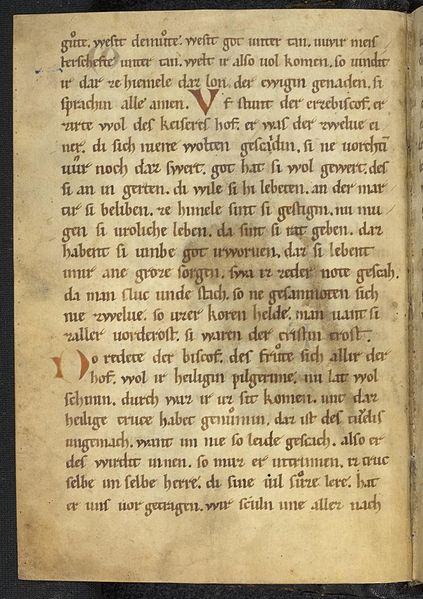 gůte. wesit demůte. wesit got unter tan. uwir meis
terschefte unter tan. welt ir also uol komen. so uindit
ir dar ze himele dar lon. der ewigin genaden. si
sprachin alle amen. Vf stunt der erzebiscof. er
zirte wol des keiseres hof. er was der zwelue ei
ner. di sich niene wolten gescadin. si ne uorchtin
uůr noch daz swert. got hat si wol gewert. des
si an in gerten. di wile si hi lebeten. an der mar
tir si beliben. ze himele sint si gestigin. nu mu
gen si uroliche leben. da sint si rat geben. daz
habent si umbe got irworuen. daz si lebent
imir ane groze sorgen. swa iz zeder note gescah.
da man sluc unde stach. so ne gesamnoten sich
nie zwelue. so uzer koren helde. man uant si
zaller uorderost. si waren der cristin trost.
Do redete der biscof. des frůte sich allir der
hof. wol ir heiligin pilgerime. nu lat wol
schinin. durch waz ir uz sit komen. unt daz
heilige cruce habet genomin. daz ist des tiůels
ungemach. want im nie so leide gescach. also er
des wirdit innen. so můz er intrinnen. iz truc
selbe un selbe herre. di sine uil sůze lere. hat
er uns uor getragen. wir sculn ime alle nach